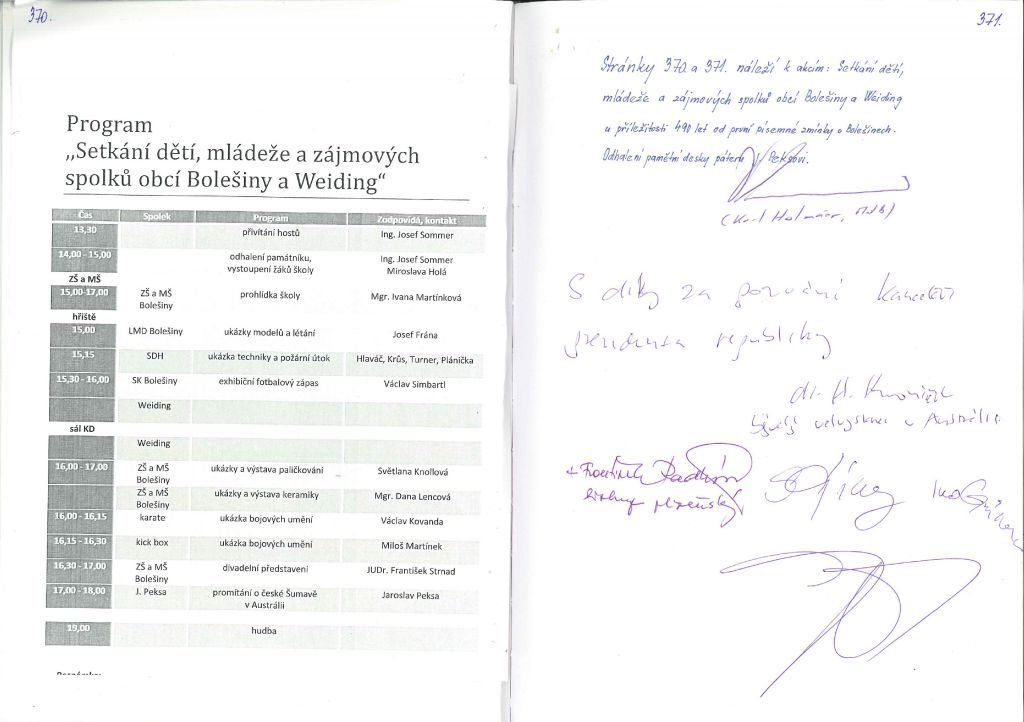 370.
Program
„Setkání dětí, mládeže a zájmových
spolků obcí Bolešiny a Weiding“
Čas Spolek Program Zodpovídá, kontakt
13,30 přivítání hostů Ing. Josef Sommer
14,00 - 15,00 odhalení památníku, Ing. Josef Sommer
vystoupení žáků školy Miroslava Holá
ZŠ a MŠ
15,00-17,00 ZŠ a MŠ prohlídka školy Mgr. Ivana Martínková
Bolešiny
hřiště
15,00 LMD Bolešiny ukázky modelů a létání Josef Frána
15,15 SDH ukázka techniky a požární útok Hlaváč, Krůs, Turner, Plánička
15,30 - 16,00 SK Bolešiny exhibiční fotbalový zápas Václav Simbartl
Weiding
sál KD
Weiding
16,00 - 17,00 ZŠ a MŠ ukázky a výstava paličkování Světlana Knollová
Bolešiny
ZŠ a MŠ ukázky a výstava keramiky Mgr. Dana Lencová
Bolešiny
16,00 - 16,15 karate ukázka bojových umění Václav Kovanda
16,15 - 16,30 kick box ukázka bojových umění Miloš Martínek
16,30 - 17,00 ZŠ a MŠ divadelní představení JUDr. František Strnad
Bolešiny
17,00 - 18,00 J. Peksa promítání o české Šumavě Jaroslav Peksa
v Austrálii
19,00 hudba
371.
Stránky 370 a 371. náleží k akcím: Setkání dětí,
mládeže a zájmových spolků obcí Bolešiny a Weiding
u příležitosti 490 let od první písemné zmínky o Bolešinech.
Odhalení pamětní desky páteru Peksovi.
(Karl Holmeier, MdB)
S díky za pozvání Kancelář
prezidenta republiky
dr. H.
bývalý velvyslanec v Austrálii
+ František Radkovský
biskup plzeňský